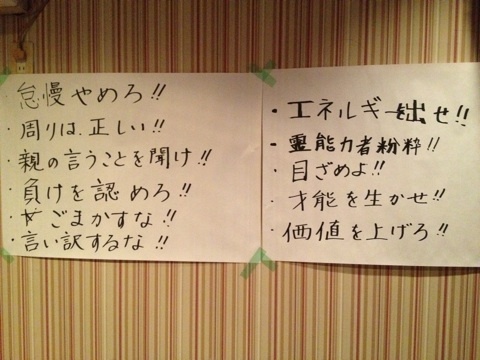 怠慢やめろ!!
・周りは、正しい!!
・親の言うことを聞け!!
・負けを認めろ!!
・ごまかすな!!
・言い訳するな!!
・エネルギー出せ!!
・霊能力者粉粋!!
・目ざめよ!!
・才能を生かせ!!
・価値を上げろ!!